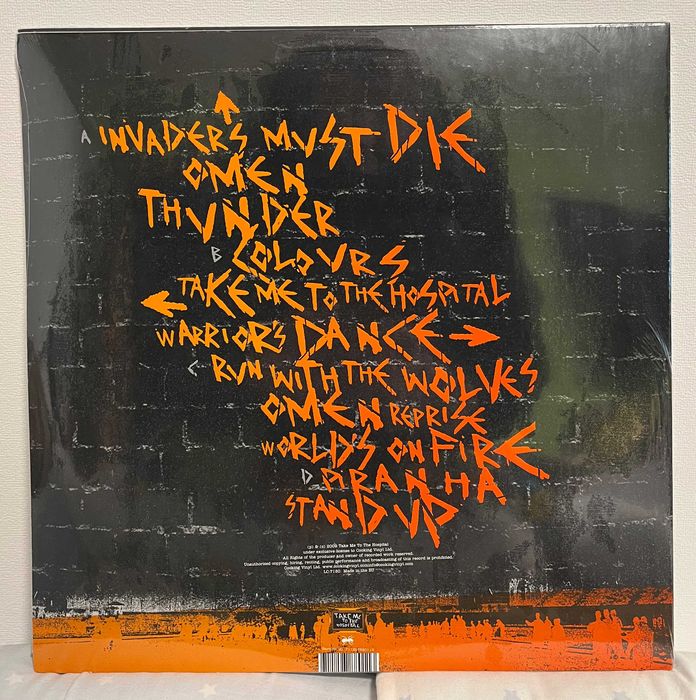 A INVADERS MUST DIE
OMEN
THUNDER
B COLOURS
TAKE ME TO THE HOSPITAL
WARRIOR'S DANCE
C RUN WITH THE WOLVES
OMEN REPRISE
WORLD'S ON FIRE
D PIRANHA
STAND UP
(p) & (c) 2009 Take Me To The Hospital
under exclusive license to Cooking Vinyl Ltd.
All Rights of the producer and owner of recorded work reserved.
Unauthorised copying, hiring, renting, public performance and broadcasting of this record is prohibited.
Cooking Vinyl Ltd. www.cookingvinyl.com
Made in the EU
TAKE ME
TO THE
HOSPITAL